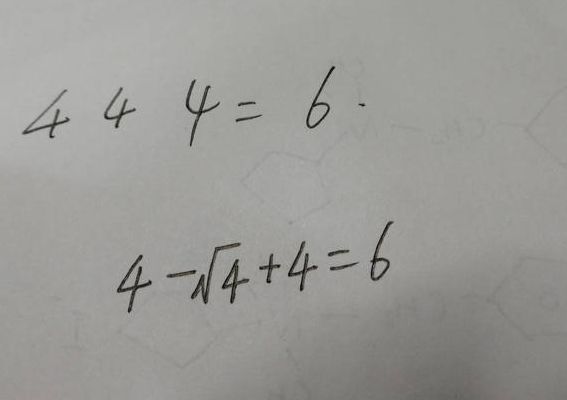 4 4 4 = 6.
4 - √4 + 4 = 6